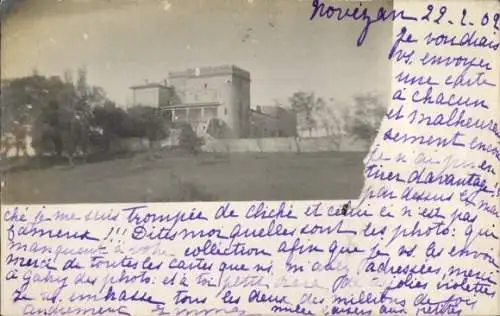 Novézan 22-2-02
Je voudrais
vs. envoyer
une carte
à chacun
et malheureu
sement en
je n'ai pu en
tirer davantage
par dessus le mar
ché je me suis trompée de cliché et celui ci n'est pas
fameux!!! Dites moi quelles sont les photo: qui
manquent à votre collection afin que je vs. les envoie
merci de toutes les cartes que vs. m'avez adressées, merci
à Gaby des photo: et à toi petite des jolies violettes
Je vs. embrasse tous les deux des millions de fois
mille baisers aux petites